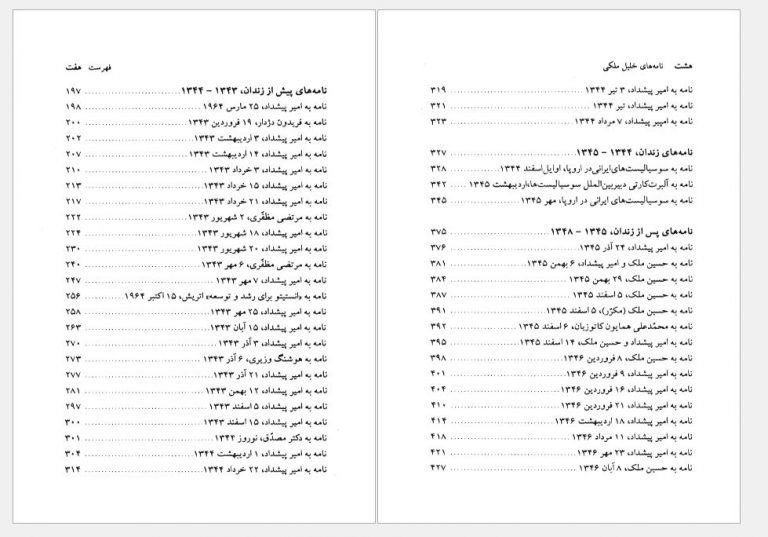 فهرست هفت
نامه‌های پیش از زندان، ۱۳۴۳ – ۱۳۴۴ ........ ۱۹۷
نامه به امیر پیشداد، ۲۵ مارس ۱۹۶۴ ........ ۱۹۸
نامه به فریدون دژدار، ۱۹ فروردین ۱۳۴۳ ........ ۲۰۰
نامه به امیر پیشداد، ۳ اردیبهشت ۱۳۴۳ ........ ۲۰۲
نامه به امیر پیشداد، ۱۴ اردیبهشت ۱۳۴۳ ........ ۲۰۷
نامه به امیر پیشداد، ۳ خرداد ۱۳۴۳ ........ ۲۱۰
نامه به امیر پیشداد، ۱۵ خرداد ۱۳۴۳ ........ ۲۱۳
نامه به امیر پیشداد، ۲۱ خرداد ۱۳۴۳ ........ ۲۱۷
نامه به مرتضی مظفّری، ۲ شهریور ۱۳۴۳ ........ ۲۲۲
نامه به امیر پیشداد، ۱۸ شهریور ۱۳۴۳ ........ ۲۲۴
نامه به امیر پیشداد، ۲۰ شهریور ۱۳۴۳ ........ ۲۳۰
نامه به مرتضی مظفّری، ۶ مهر ۱۳۴۳ ........ ۲۴۰
نامه به امیر پیشداد، ۷ مهر ۱۳۴۳ ........ ۲۴۷
نامه به «انستیتو برای رشد و توسعه» اتریش، ۱۵ اکتبر ۱۹۶۴ ........ ۲۵۶
نامه به امیر پیشداد، ۲۵ مهر ۱۳۴۳ ........ ۲۵۸
نامه به امیر پیشداد، ۱۵ آبان ۱۳۴۳ ........ ۲۶۳
نامه به امیر پیشداد، ۳ آذر ۱۳۴۳ ........ ۲۷۰
نامه به هوشنگ وزیری، ۶ آذر ۱۳۴۳ ........ ۲۷۳
نامه به امیر پیشداد، ۲۱ آذر ۱۳۴۳ ........ ۲۷۷
نامه به امیر پیشداد، ۱۲ بهمن ۱۳۴۳ ........ ۲۸۱
نامه به امیر پیشداد، ۵ اسفند ۱۳۴۳ ........ ۲۹۷
نامه به امیر پیشداد، ۱۵ اسفند ۱۳۴۳ ........ ۳۰۰
نامه به دکتر مصدّق، نوروز ۱۳۴۴ ........ ۳۰۱
نامه به امیر پیشداد، ۱ اردیبهشت ۱۳۴۴ ........ ۳۰۴
نامه به امیر پیشداد، ۲۲ خرداد ۱۳۴۴ ........ ۳۱۴
هشت نامه‌های خلیل ملکی
نامه به امیر پیشداد، ۳ تیر ۱۳۴۴ ........ ۳۱۹
نامه به امیر پیشداد، تیر ۱۳۴۴ ........ ۳۲۱
نامه به امیر پیشداد، ۷ مرداد ۱۳۴۴ ........ ۳۲۳
نامه‌های زندان، ۱۳۴۴ – ۱۳۴۵ ........ ۳۲۷
نامه به سوسیالیست‌های‌ایرانی‌در اروپا، اوایل‌اسفند ۱۳۴۴ ........ ۳۲۸
نامه به آلبرت‌کارتی دبیربین‌الملل سوسیالیست‌ها،اردیبهشت ۱۳۴۵ ........ ۳۴۲
نامه به سوسیالیست‌های ایرانی در اروپا، مهر ۱۳۴۵ ........ ۳۴۵
نامه‌های پس از زندان، ۱۳۴۵ – ۱۳۴۸ ........ ۳۷۵
نامه به امیر پیشداد، ۲۴ آذر ۱۳۴۵ ........ ۳۷۶
نامه به حسین ملک و امیر پیشداد، ۶ بهمن ۱۳۴۵ ........ ۳۸۱
نامه به حسین ملک، ۲۹ بهمن ۱۳۴۵ ........ ۳۸۴
نامه به حسین ملک، ۵ اسفند ۱۳۴۵ ........ ۳۸۷
نامه به حسین ملک (مکرّر)، ۵ اسفند ۱۳۴۵ ........ ۳۹۱
نامه به محمّدعلی همایون کاتوزیان، ۶ اسفند ۱۳۴۵ ........ ۳۹۲
نامه به امیر پیشداد و حسین ملک، ۱۴ اسفند ۱۳۴۵ ........ ۳۹۵
نامه به حسین ملک، ۸ فروردین ۱۳۴۶ ........ ۳۹۸
نامه به امیر پیشداد، ۹ فروردین ۱۳۴۶ ........ ۴۰۱
نامه به امیر پیشداد، ۱۶ فروردین ۱۳۴۶ ........ ۴۰۴
نامه به امیر پیشداد، ۲۱ فروردین ۱۳۴۶ ........ ۴۱۰
نامه به امیر پیشداد، ۱۸ اردیبهشت ۱۳۴۶ ........ ۴۱۴
نامه به امیر پیشداد، ۱۱ مرداد ۱۳۴۶ ........ ۴۱۸
نامه به امیر پیشداد، ۲۳ مهر ۱۳۴۶ ........ ۴۲۱
نامه به حسین ملک، ۸ آبان ۱۳۴۶ ........ ۴۲۷